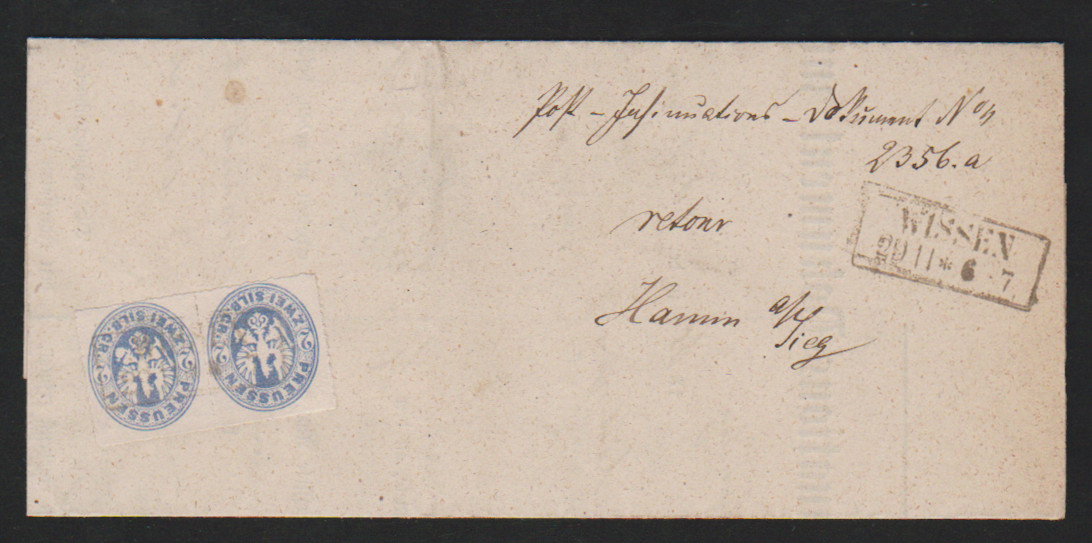 Post-Insinuations-Dokument No
2356.a
retour
Hamm a/Sieg
WISSEN
29 11 * 6-7
ZWEI SILB.GR.
PREUSSEN
2
ZWEI SILB.GR.
PREUSSEN
2